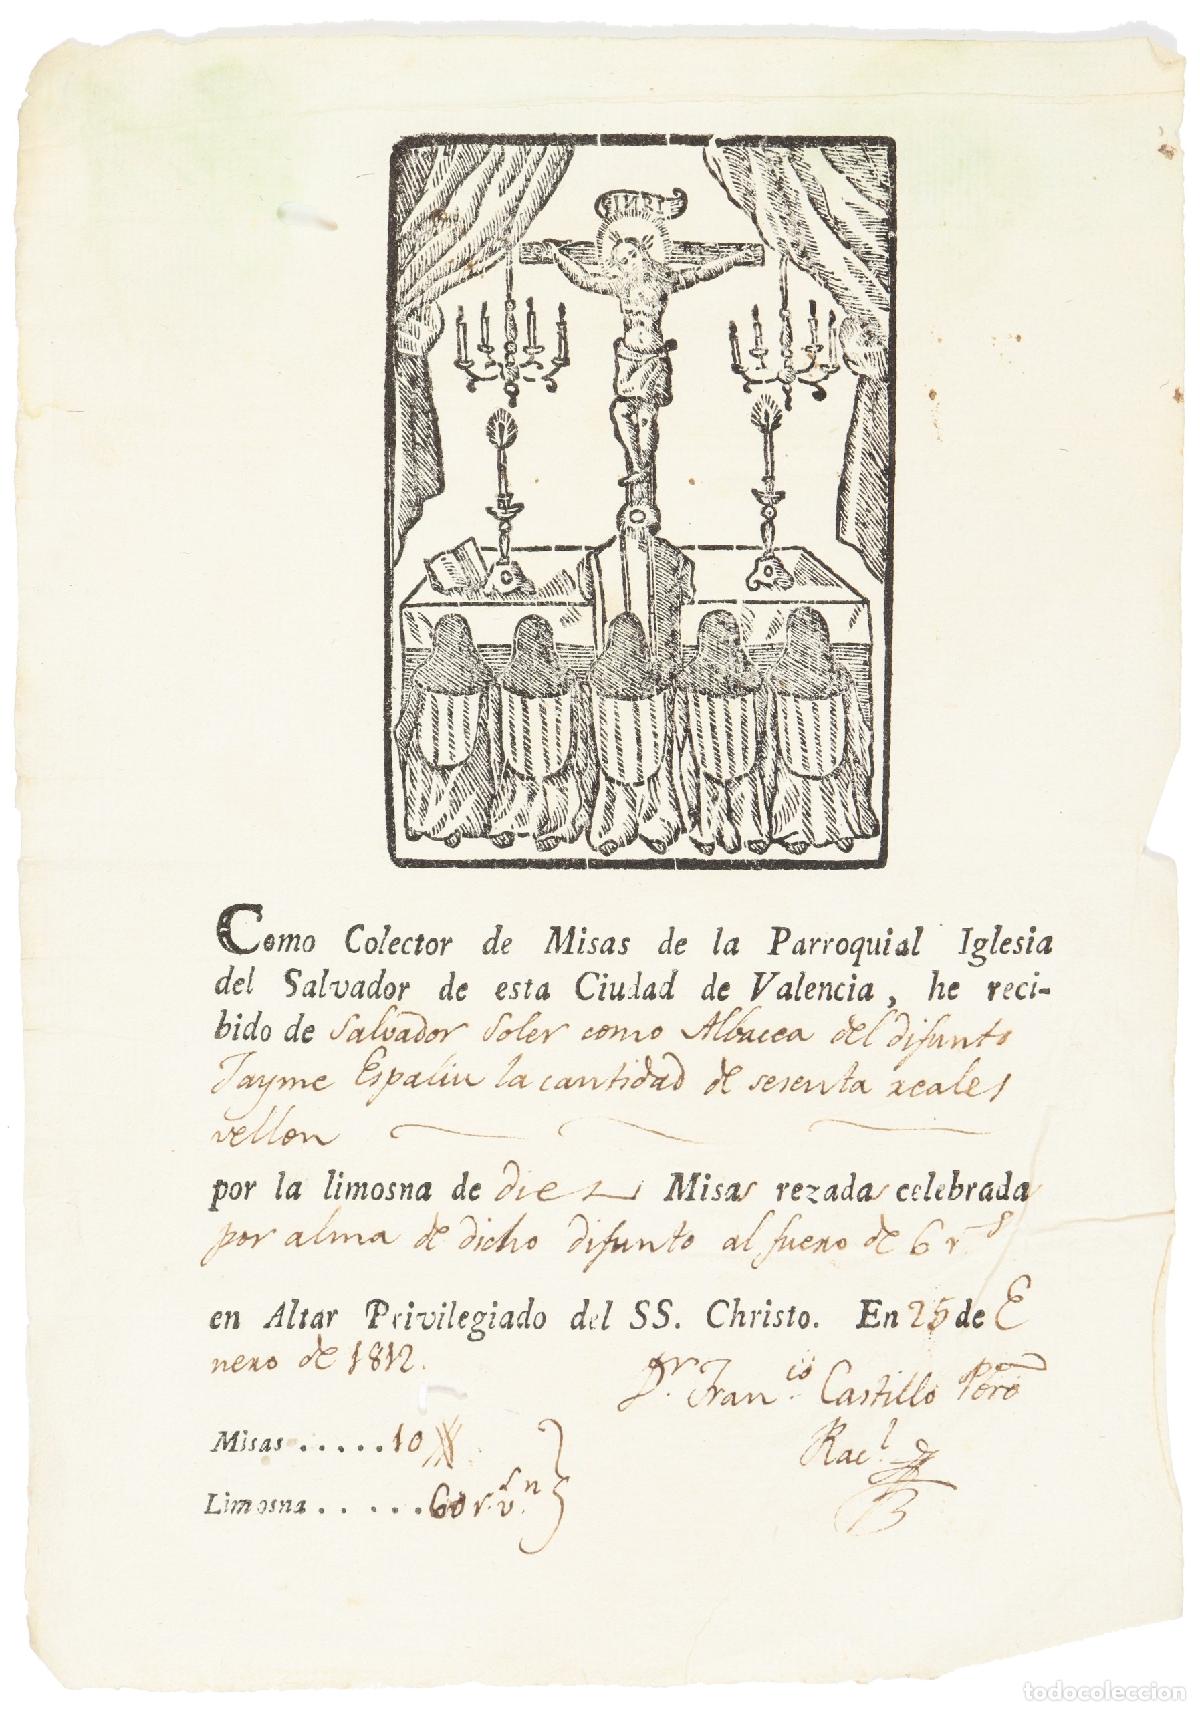 INRI
Como Colector de Misas de la Parroquial Iglesia
del Salvador de esta Ciudad de Valencia, he reci-
bido de Salvador Soler como Albacea del difunto
Jayme Espaliu la cantidad de sesenta reales
vellon
por la limosna de diez Misas rezadas celebradas
por alma de dicho difunto al fuero de 6 r.s
en Altar Privilegiado del SS. Christo. En 25 de E
nero de 1812.
Dr. Fran.co Castillo
Misas ..... 10
Racl.
Limosna ..... 60 r.s v.n
todocoleccion